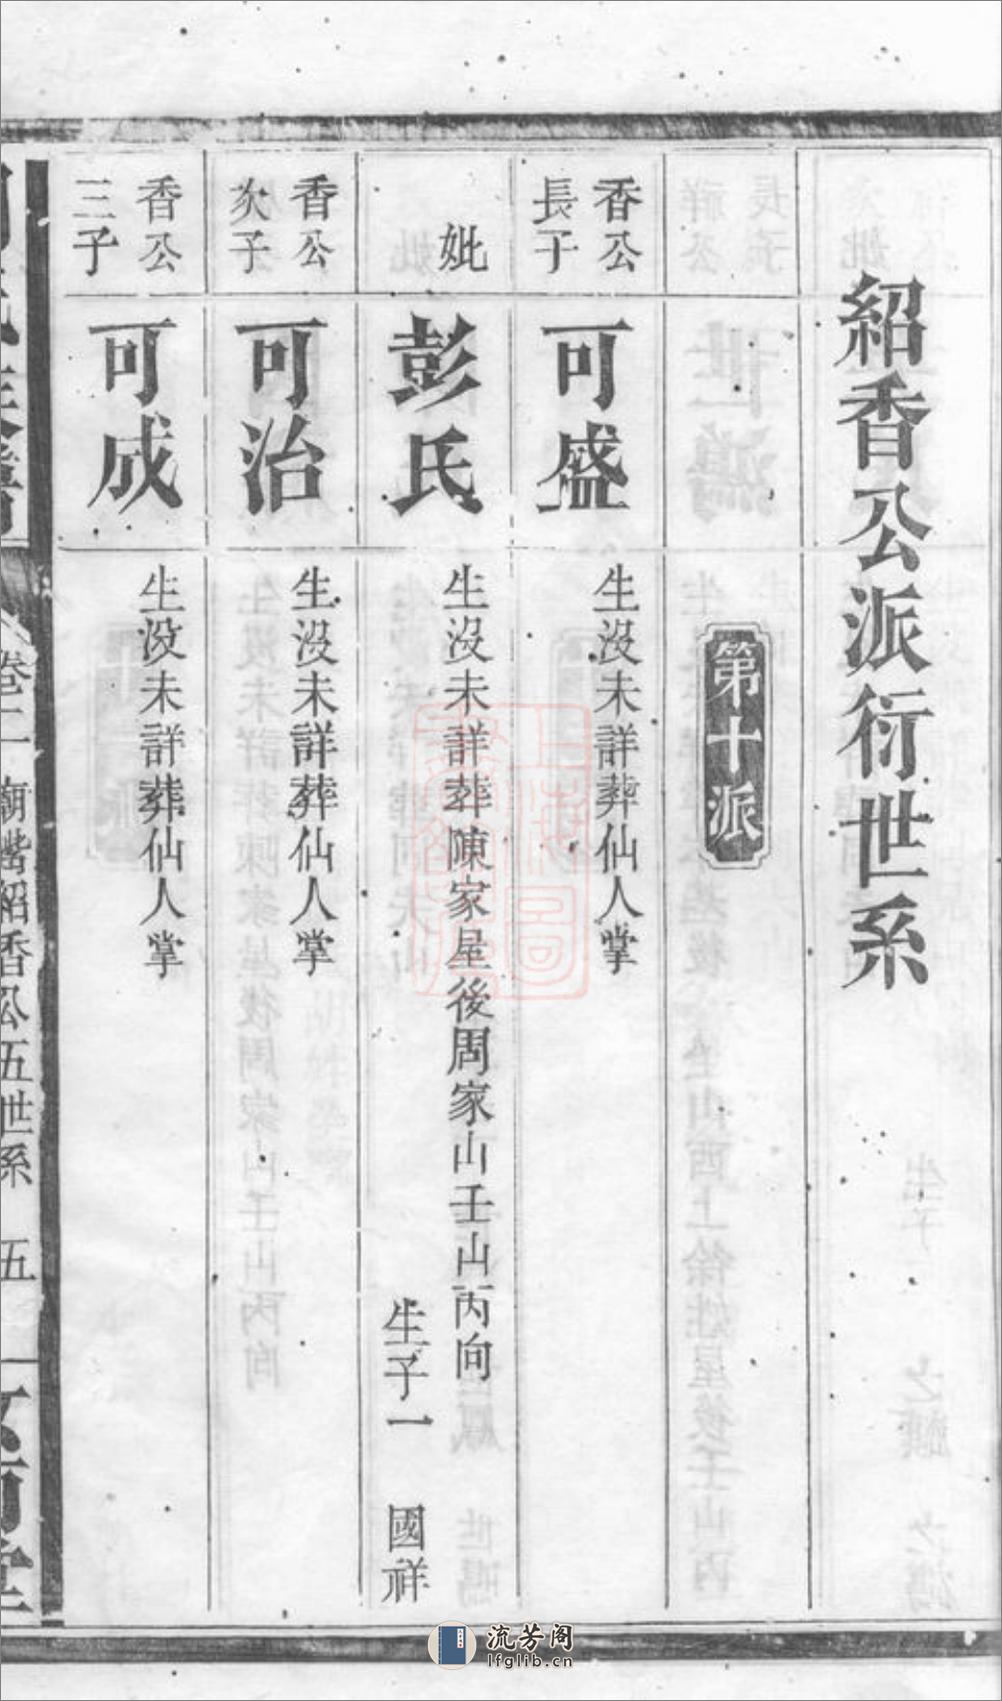 紹香公派衍世系
第十派
香公
長子
可盛
生沒未詳葬仙人掌
妣
彭氏
生沒未詳葬陳家屋後周家山壬山丙向
生子一 國祥
香公
次子
可治
生沒未詳葬仙人掌
香公
三子
可成
生沒未詳葬仙人掌
卷二 廟嘴紹香公五世系 五
流芳阁
lfglib.cn